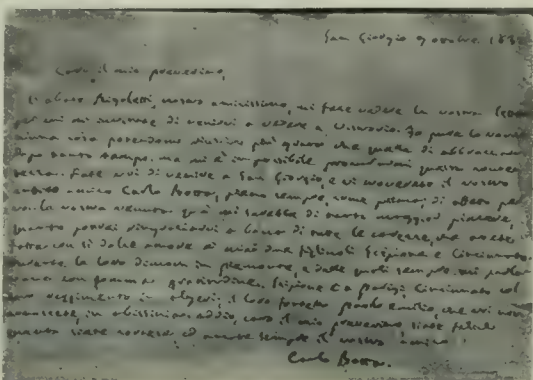 San Giorgio 9 ottobre 183
Caro il mio prevedino,
L'abate frigoletti, nostro amicissimo, mi fece vedere la vostra
per cui mi invitate di venirvi a vedere a
niuna cosa potendomi riuscire più quanto che quella di abbracciarvi
dopo tanto tempo. ma mi è impossibile procurarmi questa
Fate voi di venire a San Giorgio, e vi troverete il vostro
antico amico Carlo Botta, pieno sempre, come prima, di affetto per
voi. la vostra venuta quì mi sarebbe di tanto maggior piacere,
quanto potrei ringraziarvi a bocca di tutte le carezze, che avete
fatte con sì dolce amore ai miei due figliuoli Scipione e Cincinnato
durante la loro dimora in piemonte, e delle quali sempre mi parlano
con somma gratitudine. Scipione è a parigi, Cincinnato col
suo reggimento in algeri, il loro fratello paolo emilio, che voi non
conoscete, in abissinia. addio, caro il mio prevedino, siate felice
quanto siete cortese ed amate sempre il vostro amico
Carlo Botta.